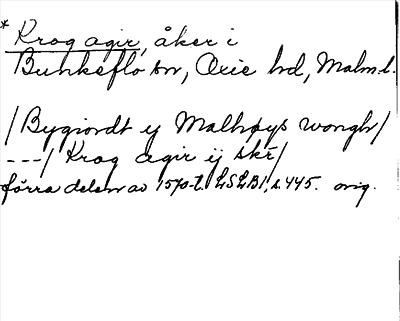 * Krog agir, åker i
Bunkeflo sn, Oxie hd, Malm.l.
/Bygiordt ij Malhøys wongh/
---/ Krog agir ij skr̄/
förra delen av 1570-t. LSLB1, s. 445. orig.